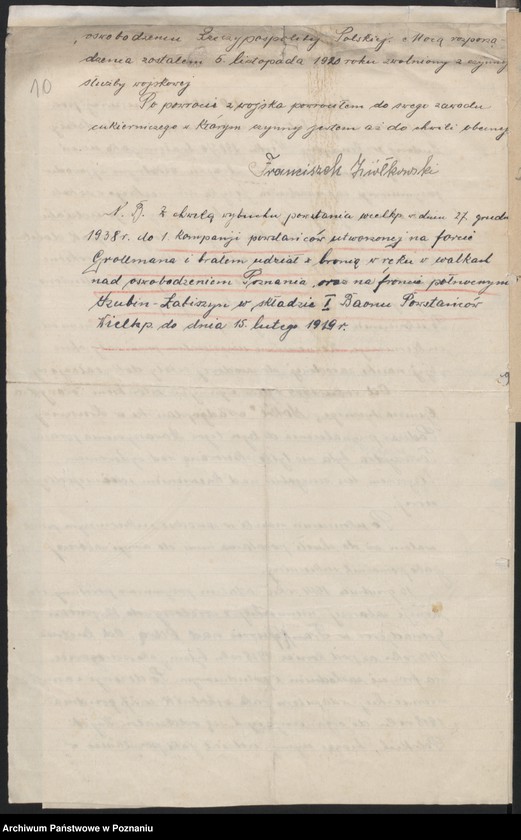 10
oswobodzeniu Rzeczypospolitej Polskiej. Mocą rozporzą
dzenia zostałem 5. listopada 1920 roku zwolniony z czynnej
służby wojskowej
Po powrocie z wojska powróciłem do swego zawodu
cukierniczego w którym czynny jestem aż do chwili obecnej
Franciszek Ziółkowski
N. D. Z chwilą wybuchu powstania wielkp. w dniu 27. grudnia
1938 r. do 1. kompanji powstańców utworzonej na forcie
Grollmana i brałem udział z bronią w ręku w walkach
nad oswobodzeniem Poznania, oraz na froncie północnym
Szubin-Łabiszyn w składzie I Baonu Powstańców
Wielkp. do dnia 15. lutego 1919 r.
Archiwum Państwowe w Poznaniu